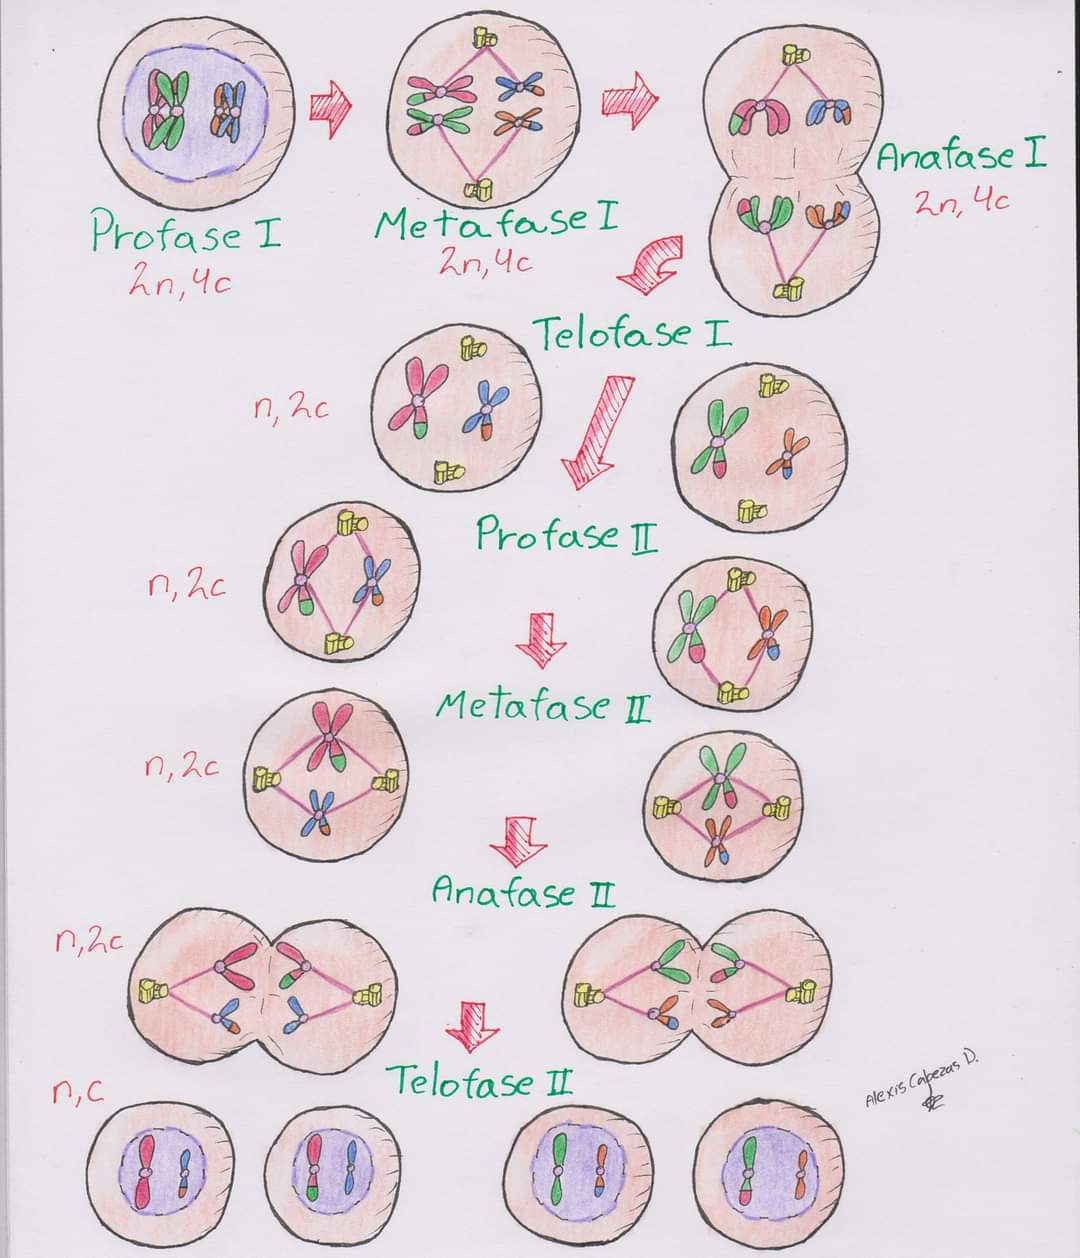 Profase I
2n, 4c
Metafase I
2n, 4c
Anafase I
2n, 4c
Telofase I
n, 2c
Profase II
n, 2c
Metafase II
n, 2c
Anafase II
n, 2c
Telofase II
n, c
Alexis Cabezas D.